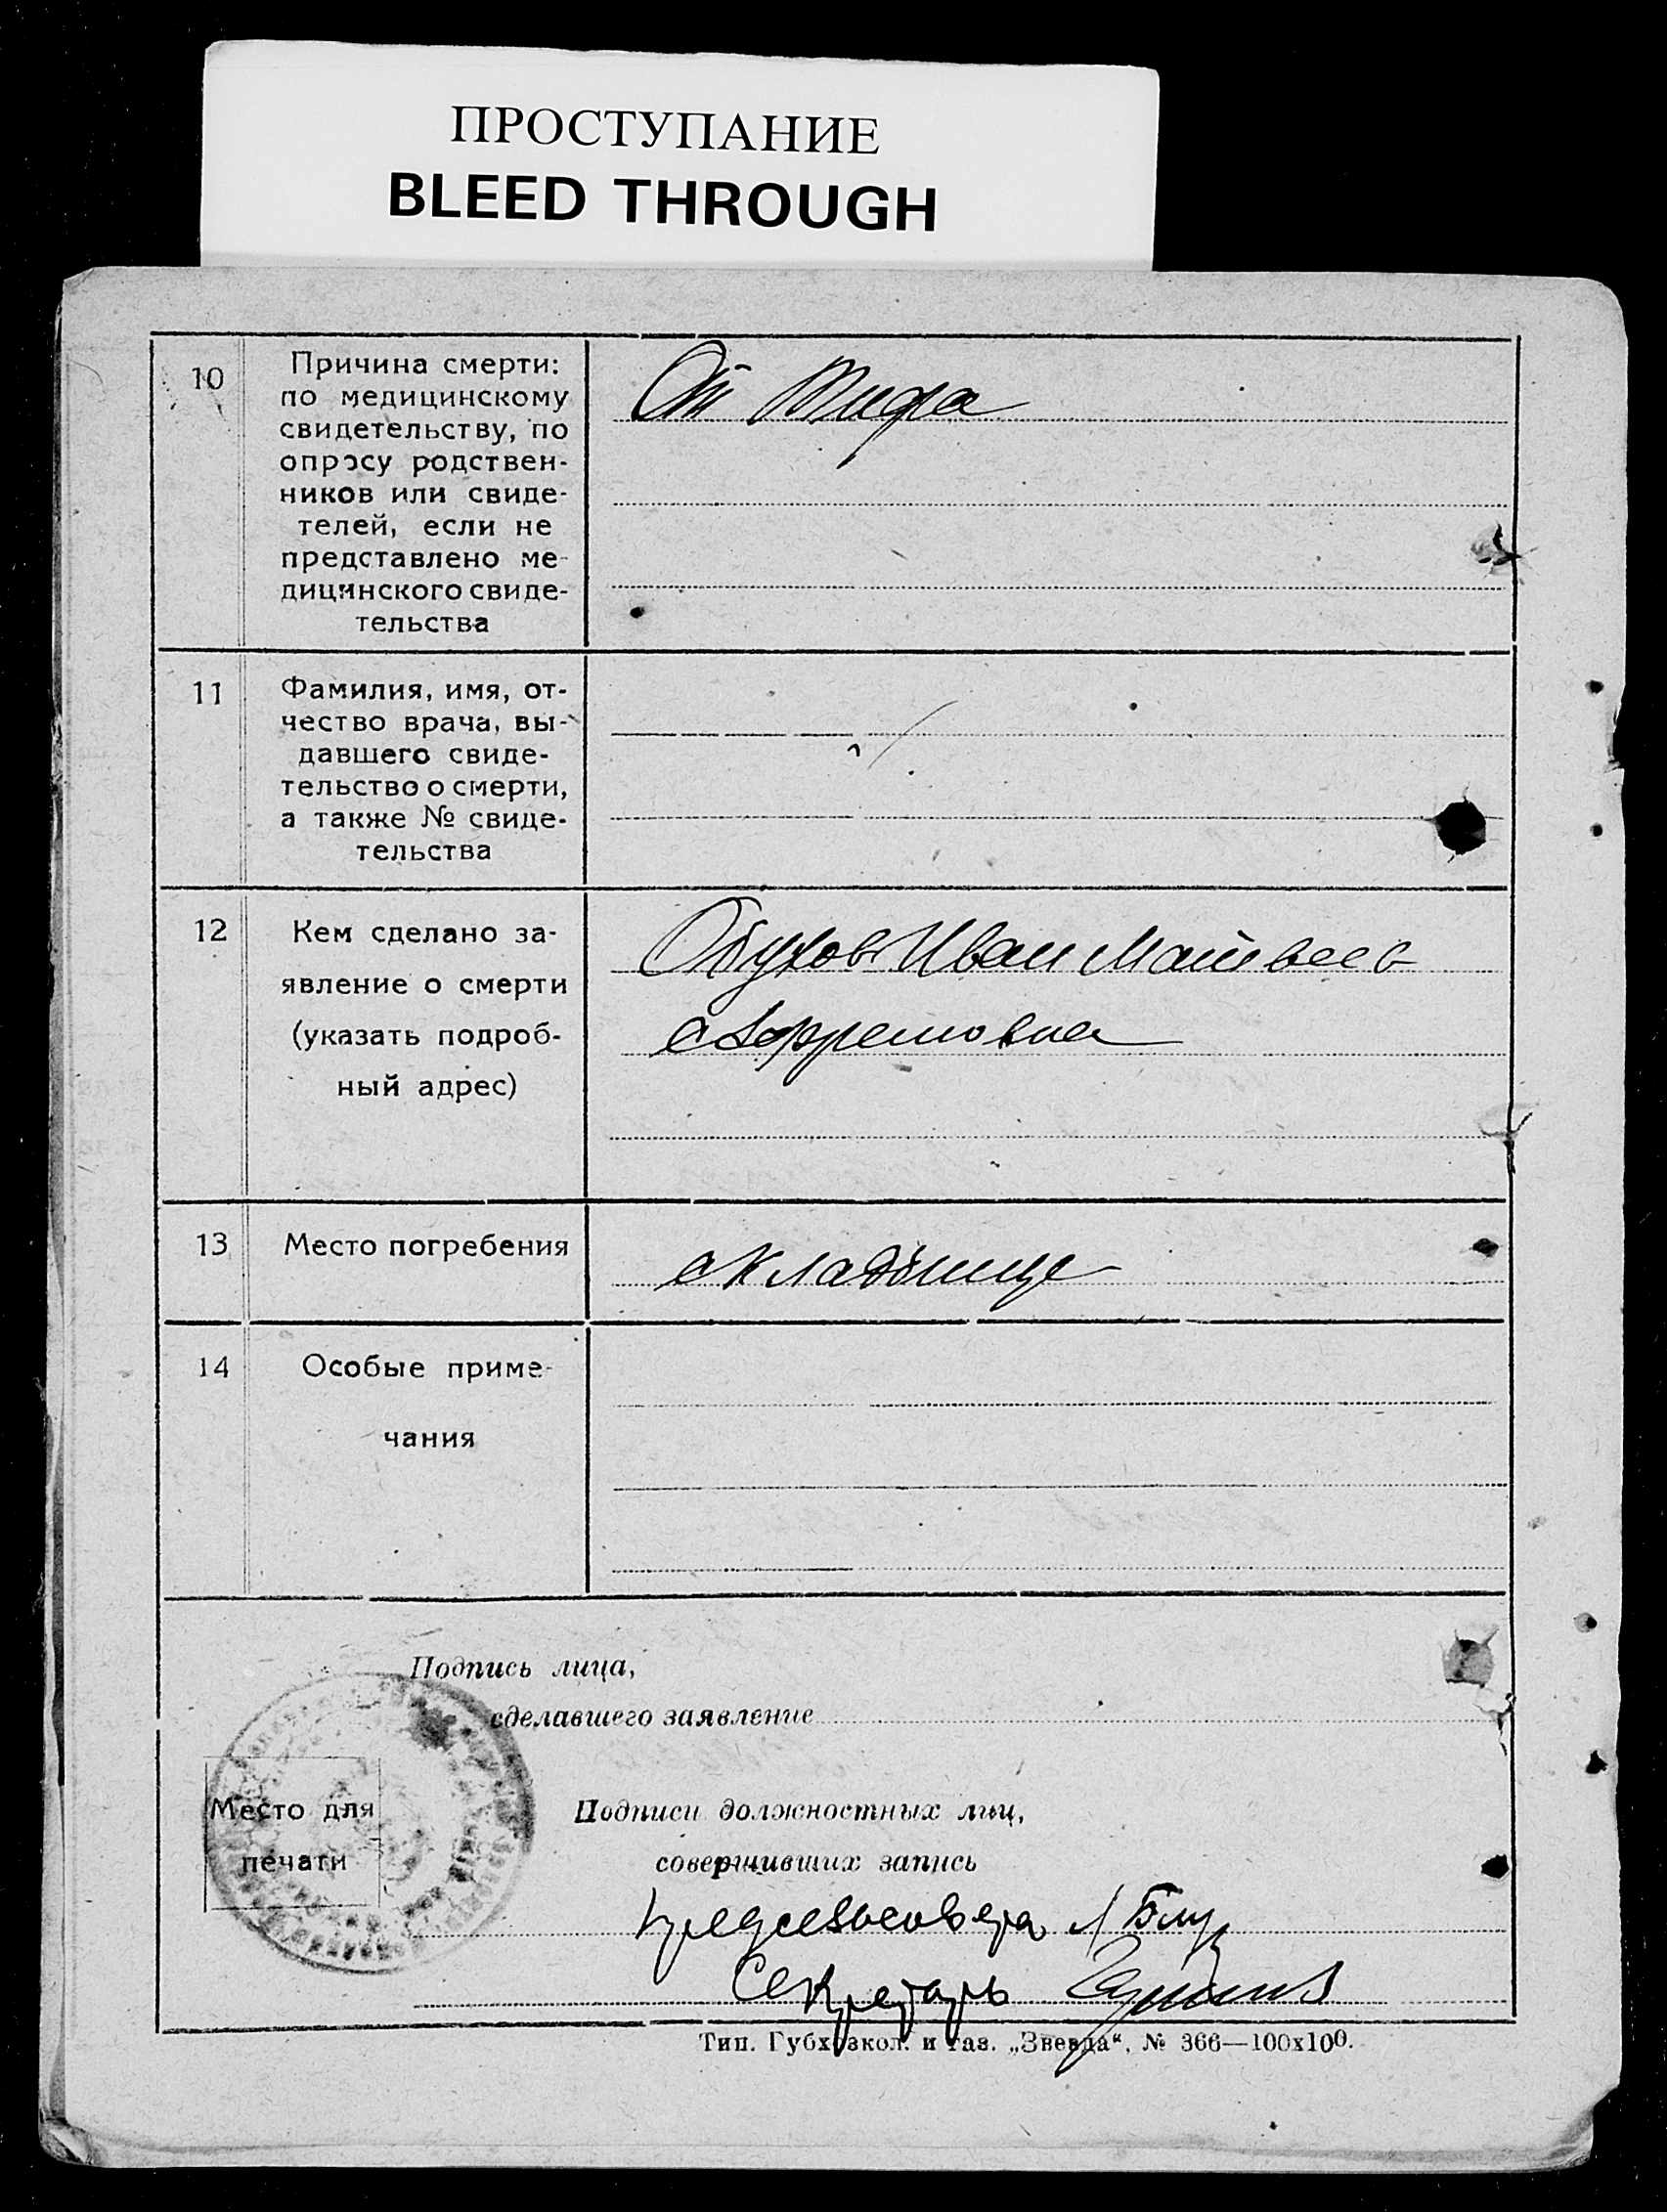 ПРОСТУПАНИЕ
BLEED THROUGH
10
Причина смерти:
по медицинскому
свидетельству, по
опросу родствен-
ников или свиде-
телей, если не
представлено ме-
дицинского свиде-
тельства
От Тифа
11
Фамилия, имя, от-
чество врача, вы-
давшего свиде-
тельство о смерти,
а также № свиде-
тельства
12
Кем сделано за-
явление о смерти
(указать подроб-
ный адрес)
Обухов Иван Матвеев
13
Место погребения
Кладбище
14
Особые приме-
чания
Подпись лица,
сделавшего заявление
Место для
печати
Подписи должностных лиц,
совершивших запись
Секретарь
Тип. Губхозкол. и газ. „Звезда“, № 366—100х100.